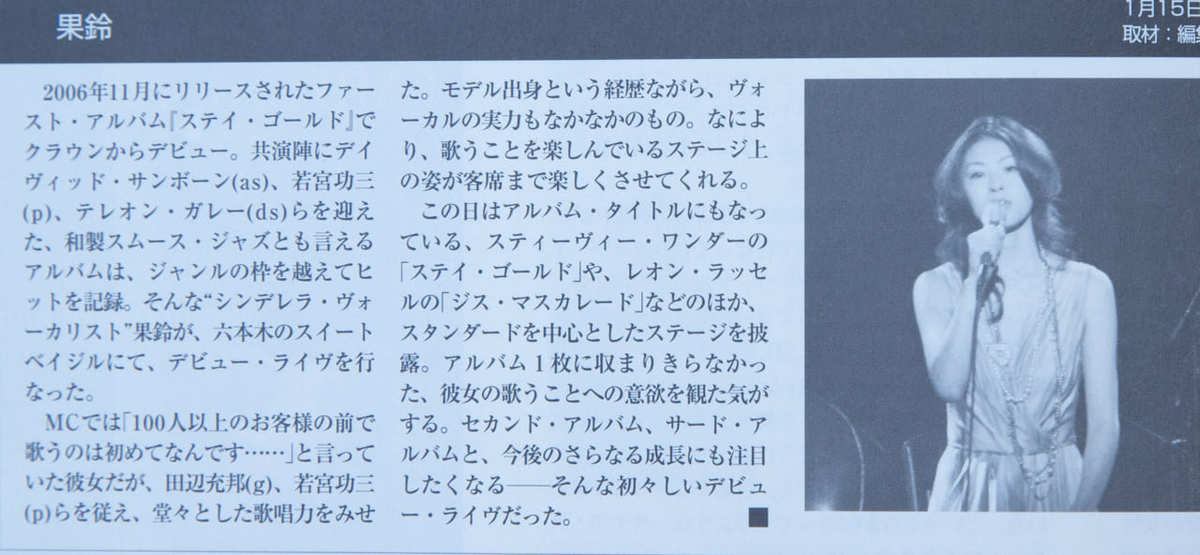 果鈴
1月15日
取材：編集
2006年11月にリリースされたファー
スト・アルバム『ステイ・ゴールド』で
クラウンからデビュー。共演陣にデイ
ヴィッド・サンボーン(as)、若宮功三
(p)、テレオン・ガレー(ds)らを迎え
た、和製スムース・ジャズとも言える
アルバムは、ジャンルの枠を越えてヒ
ットを記録。そんな“シンデレラ・ヴォ
ーカリスト”果鈴が、六本木のスイート
ベイジルにて、デビュー・ライヴを行
なった。
MCでは「100人以上のお客様の前で
歌うのは初めてなんです……」と言って
いた彼女だが、田辺充邦(g)、若宮功三
(p)らを従え、堂々とした歌唱力をみせ
た。モデル出身という経歴ながら、ヴォ
ーカルの実力もなかなかのもの。なによ
り、歌うことを楽しんでいるステージ上
の姿が客席まで楽しくさせてくれる。
この日はアルバム・タイトルにもなっ
ている、スティーヴィー・ワンダーの
「ステイ・ゴールド」や、レオン・ラッセ
ルの「ジス・マスカレード」などのほか、
スタンダードを中心としたステージを披
露。アルバム1枚に収まりきらなかっ
た、彼女の歌うことへの意欲を観た気が
する。セカンド・アルバム、サード・ア
ルバムと、今後のさらなる成長にも注目
したくなる——そんな初々しいデビュ
ー・ライヴだった。 ■